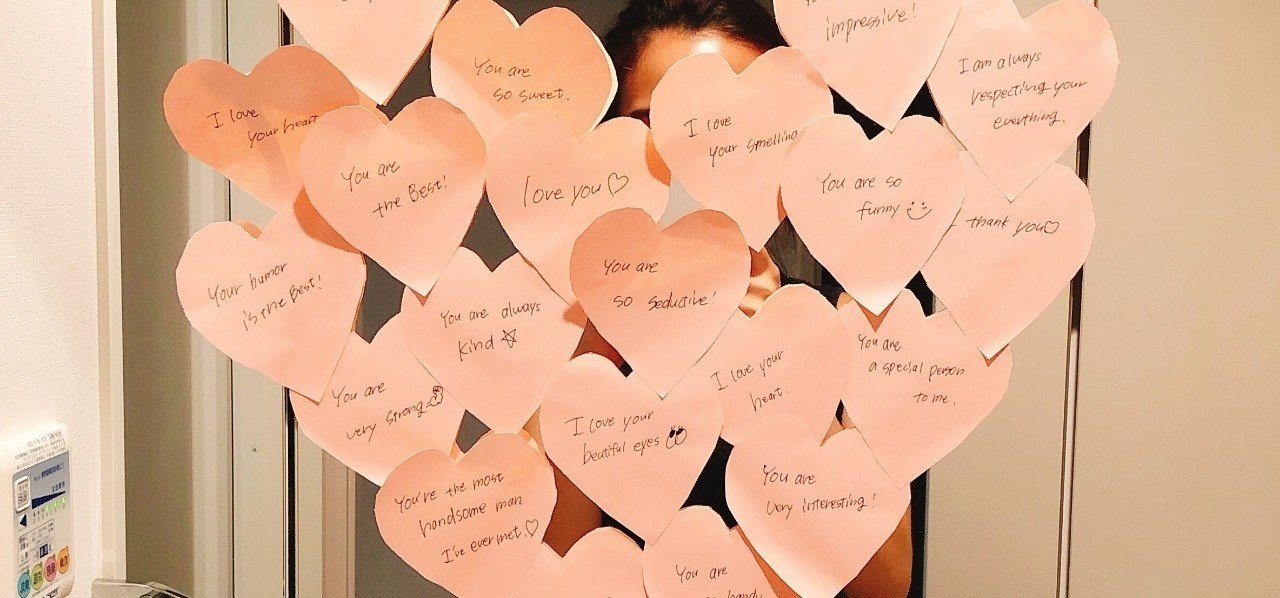 impressive!
You are
so sweet.
I am always
respecting your
everything.
I love
your heart
I love
your smelling
You are
the Best!
love you♡
You are so
funny
thank you♡
Your humor
is the Best!
You are
so seductive!
You are always
kind ☆
You are
very strong
I love your
heart.
You are
a special person
to me.
I love your
beutiful eyes
You're the most
handsome man
I've ever met.♡
You are
very interesting!
You are